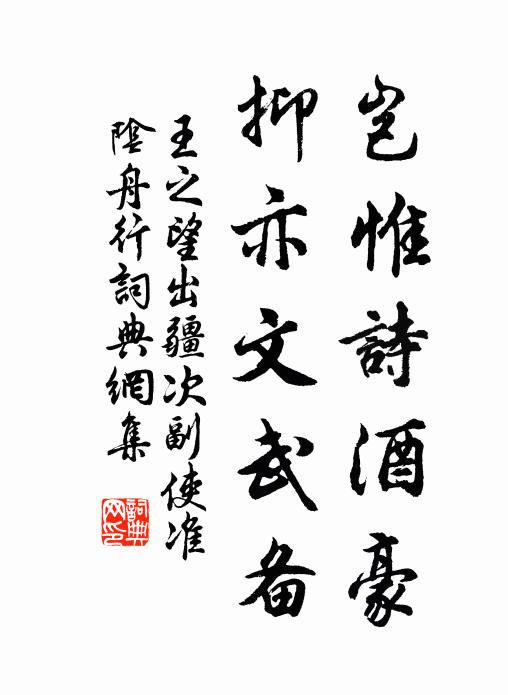 岂惟詩酒豪
抑亦文武备
王之望出疆次副使准
陰舟行詞典網集
詞典
网印